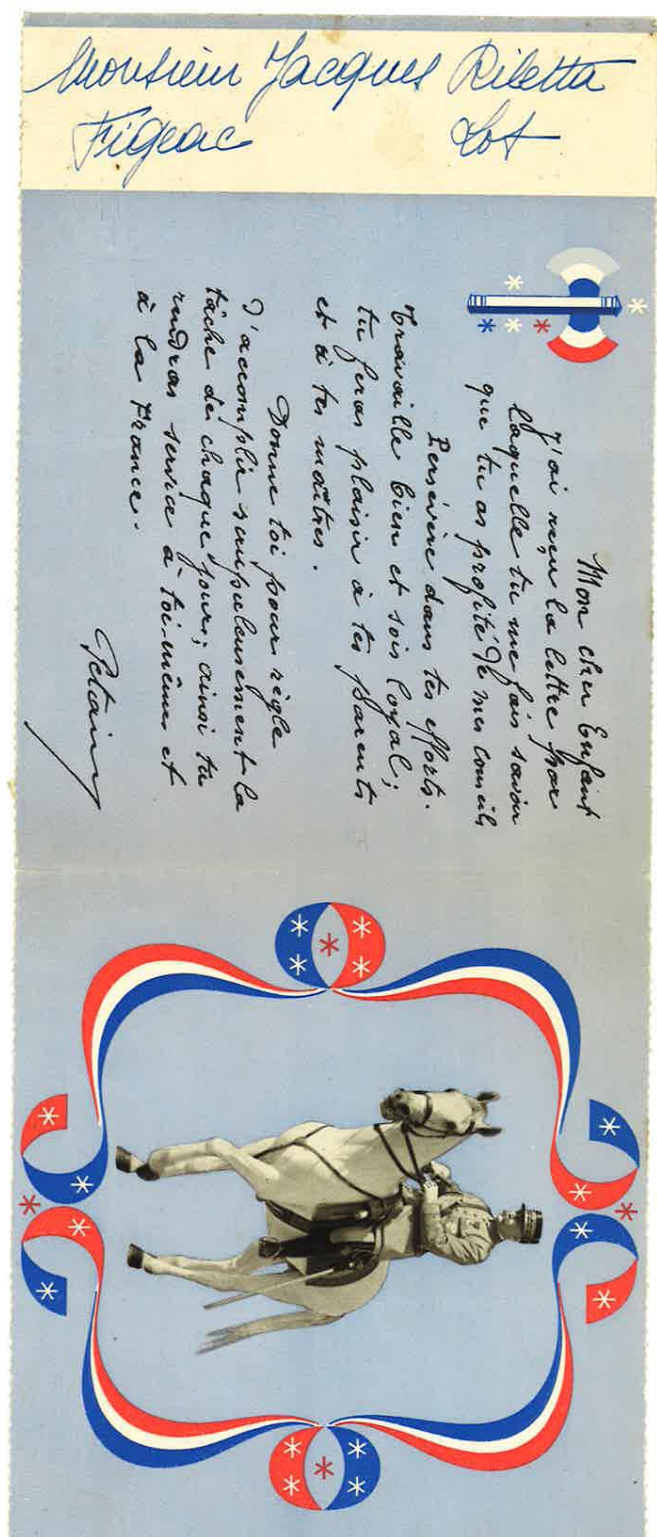 Monsieur Jacques Riletta
Figeac Lot
Mon cher Enfant
J'ai reçu la lettre par
laquelle tu me fais savoir
que tu as profité de mes conseils
Persévère dans tes efforts.
Travaille bien et sois loyal ;
tu feras plaisir à tes parents
et à tes maîtres.
Donne toi pour règle
d'accomplir scrupuleusement la
tâche de chaque jour ; ainsi tu
rendras service à toi-même et
à la France.
Ph Pétain